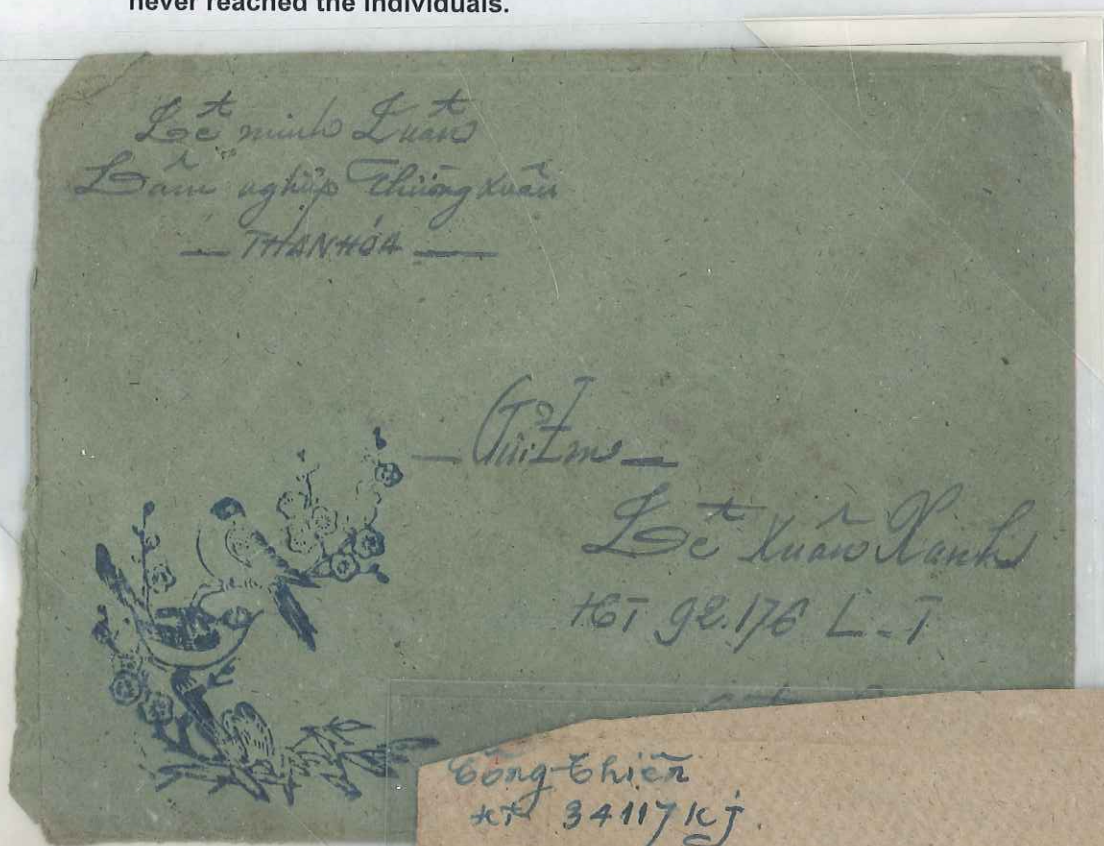 never reached the individuals.
Lê minh Luân
Lâm nghiệp Thường Xuân
THANH HÓA
Gửi Em
Lê Xuân Xanh
HT 92.176 L-T
Công Chiến
HT 34117 KJ.